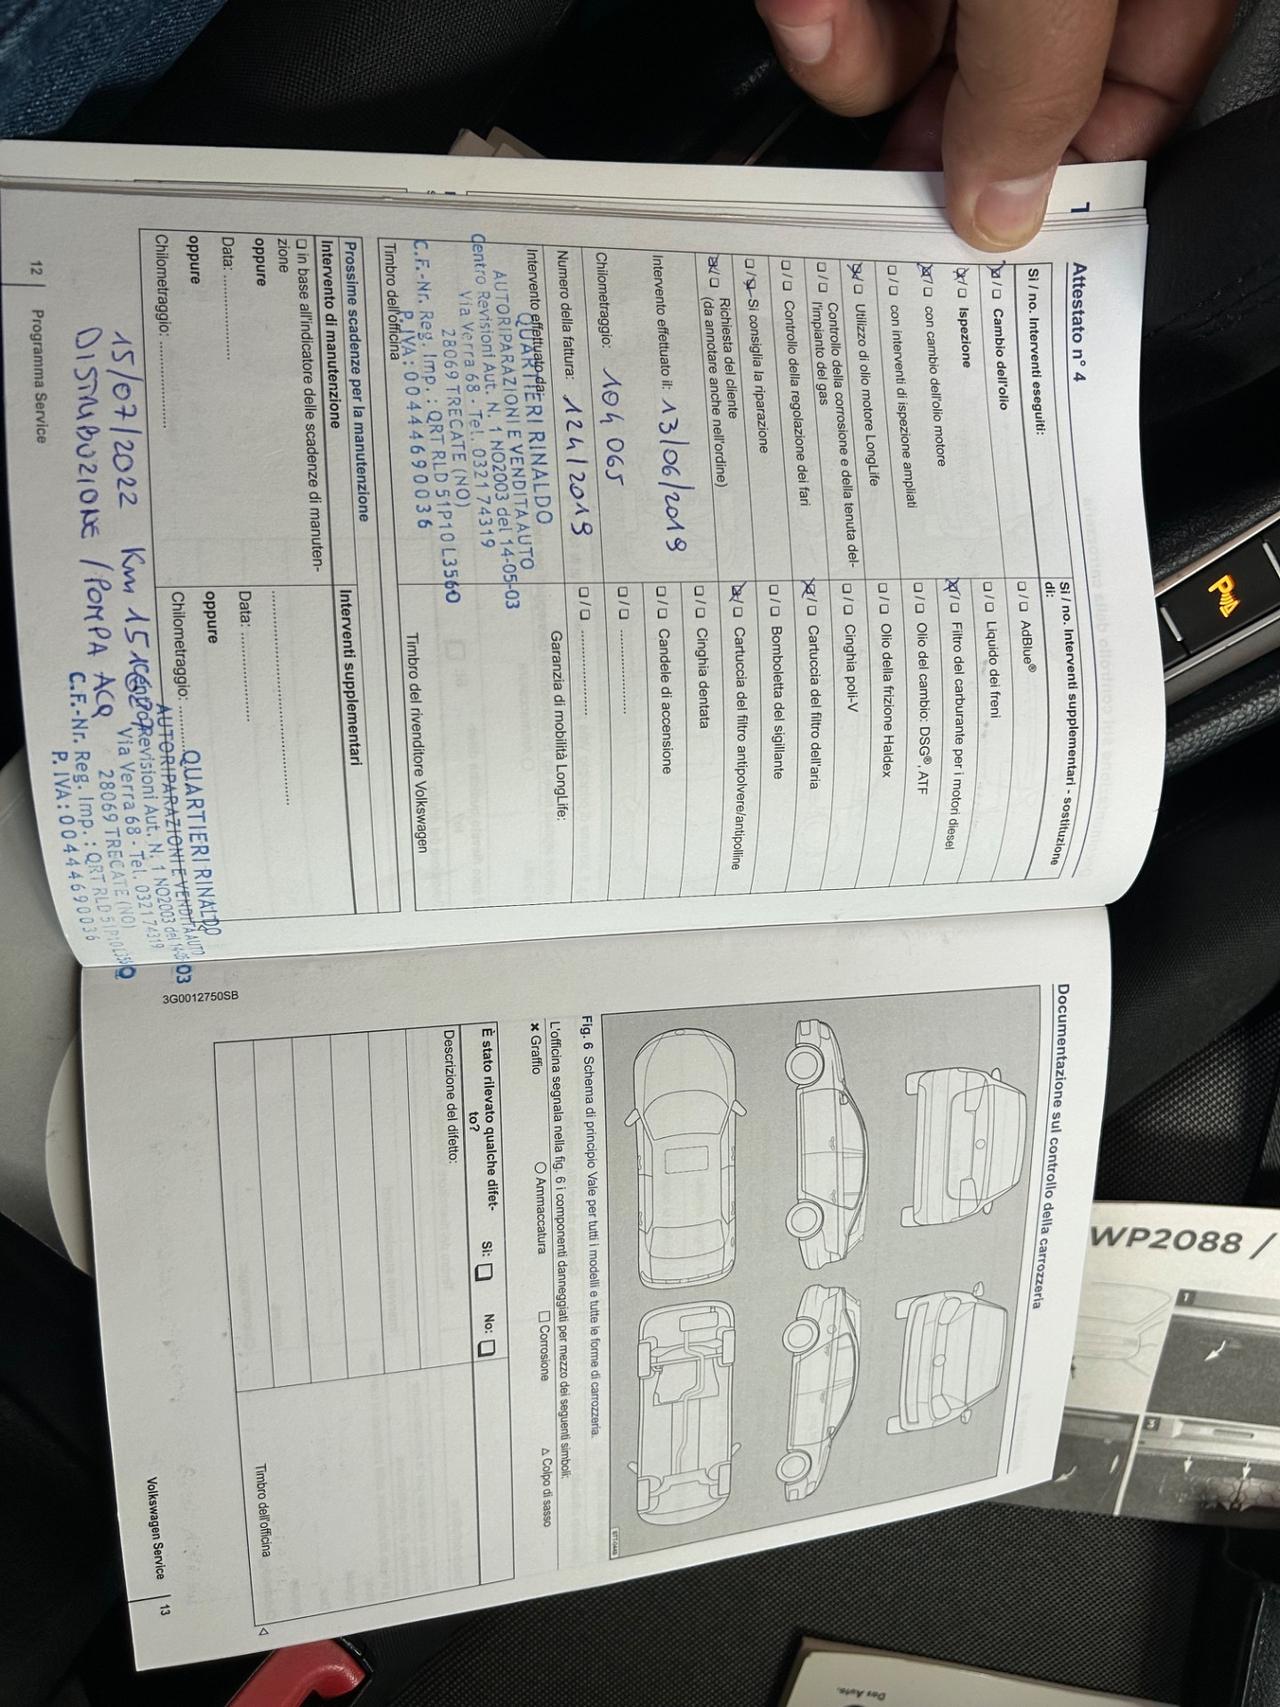 Attestato n° 4
Si / no. Interventi eseguiti:
Cambio dell'olio
Ispezione
con cambio dell'olio motore
con interventi di ispezione ampliati
Utilizzo di olio motore LongLife
Controllo della corrosione e della tenuta del-
l'impianto del gas
Controllo della regolazione dei fari
Si consiglia la riparazione
Richiesta del cliente
(da annotare anche nell'ordine)
Intervento effettuato il: 13/06/2019
Chilometraggio: 104 065
Numero della fattura: 124/2019
Intervento effettuato da:
QUARTIERI RINALDO
AUTORIPARAZIONI E VENDITA AUTO
Centro Revisioni Aut. N. 1 NO2003 del 14-05-03
Via Verra 68 - Tel. 0321 74319
28069 TRECATE (NO)
C.F.-Nr. Reg. Imp.: QRT RLD 51P10 L356O
P. IVA: 00444690036
Timbro dell'officina
Si / no. Interventi supplementari - sostituzione
di:
AdBlue®
Liquido dei freni
Filtro del carburante per i motori diesel
Olio del cambio: DSG®, ATF
Olio della frizione Haldex
Cinghia poli-V
Cartuccia del filtro dell'aria
Bomboletta del sigillante
Cartuccia del filtro antipolvere/antipolline
Cinghia dentata
Candele di accensione
Garanzia di mobilità LongLife:
Timbro del rivenditore Volkswagen
Prossime scadenze per la manutenzione
Intervento di manutenzione
in base all'indicatore delle scadenze di manuten-
zione
oppure
Data:
oppure
Chilometraggio:
Interventi supplementari
Data:
oppure
Chilometraggio:
QUARTIERI RINALDO
AUTORIPARAZIONI E VENDITA AUTO
Revisioni Aut. N. 1 NO2003 del 14-05-03
Via Verra 68 - Tel. 0321 74319
28069 TRECATE (NO)
C.F.-Nr. Reg. Imp.: QRT RLD 51P10 L356O
P. IVA: 00444690036
15/07/2022 Km
DISTRIBUZIONE / POMPA ACQ
12 Programma Service
Documentazione sul controllo della carrozzeria
Fig. 6 Schema di principio Vale per tutti i modelli e tutte le forme di carrozzeria.
L'officina segnala nella fig. 6 i componenti danneggiati per mezzo dei seguenti simboli:
× Graffio ○ Ammaccatura □ Corrosione △ Colpo di sasso
È stato rilevato qualche difet-
to? Sì: No:
Descrizione del difetto:
Timbro dell'officina
3G0012750SB
Volkswagen Service 13
WP2088 /
1
3
Das Auto.